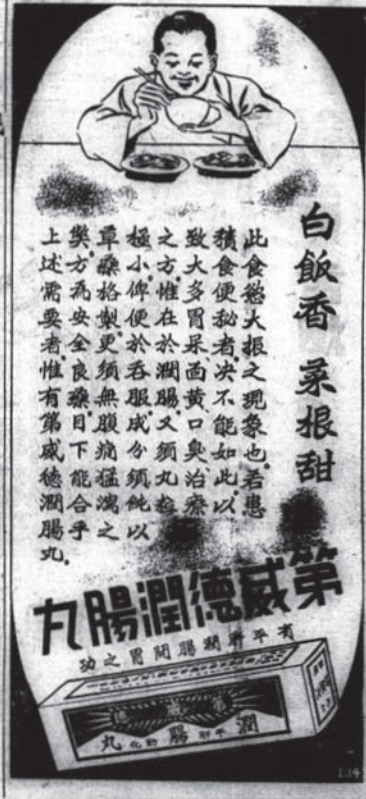 白飯香 菜根甜
此食慾大振之現象也.若患
積食便秘者决不能如此.以
致大多胃呆面黄.口臭.治療
之方.惟在於潤腸.又須丸粒
極小.俾便於吞服.成分須純以
草藥格製.更須無腹痛猛瀉之
弊.方為安全良藥.目下能合乎
上述需要者.惟有第威德潤腸丸.
第威德潤腸丸
有平肝潤腸開胃之功
潤腸丸
平肝
助化
1.14